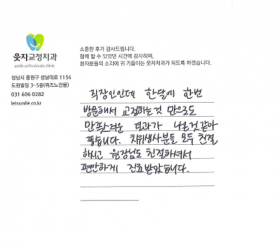 웃자교정치과
성남시 중원구 성남대로 1156
도원빌딩 3~5층(위즈노안옆)
031 606 0282
leissmile.co.kr
소중한 후기 감사드립니다.
함께 할 수 있었던 시간에 감사하며,
환자분들의 소리에 귀 기울이는 웃자치과가 되도록 하겠습니다.
직장인인데 한달에 한번
방문해서 교정하는것 만으로도
만족스러운 결과가 나온것 같아
좋습니다. 치위생사분들 모두 친절
하시고 원장님도 친절하셔서
편안하게 진료받았습니다.